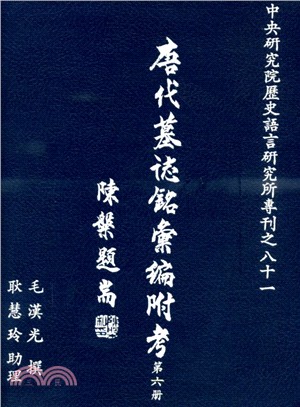 中央研究院歷史語言研究所專刊之八十一
唐代墓誌銘彙編附考
第六册
陳槃題耑
毛漢光 撰
耿慧玲 助理